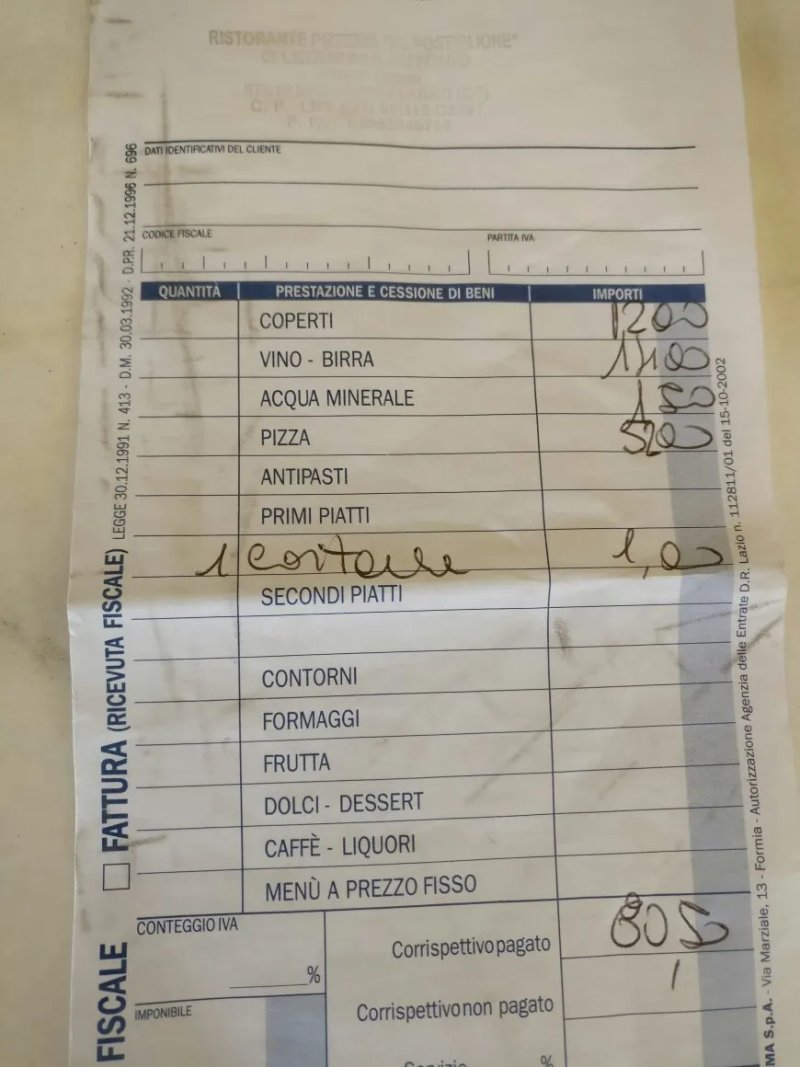 RISTORANTE PIZZERIA "IL POSTIGLIONE"
DATI IDENTIFICATIVI DEL CLIENTE
CODICE FISCALE PARTITA IVA
QUANTITÀ PRESTAZIONE E CESSIONE DI BENI IMPORTI
COPERTI 1200
VINO - BIRRA
ACQUA MINERALE
PIZZA 5200
ANTIPASTI
PRIMI PIATTI
1 1,00
SECONDI PIATTI
CONTORNI
FORMAGGI
FRUTTA
DOLCI - DESSERT
CAFFÈ - LIQUORI
MENÙ A PREZZO FISSO
CONTEGGIO IVA
%
IMPONIBILE
Corrispettivo pagato
Corrispettivo non pagato
Servizio %
FISCALE
FATTURA (RICEVUTA FISCALE) LEGGE 30.12.1991 N. 413 - D.M. 30.03.1992 - D.P.R. 21.12.1996 N. 696
MA S.p.A. - Via Marziale, 13 - Formia - Autorizzazione Agenzia delle Entrate D.R. Lazio n. 112811/01 del 15-10-2002